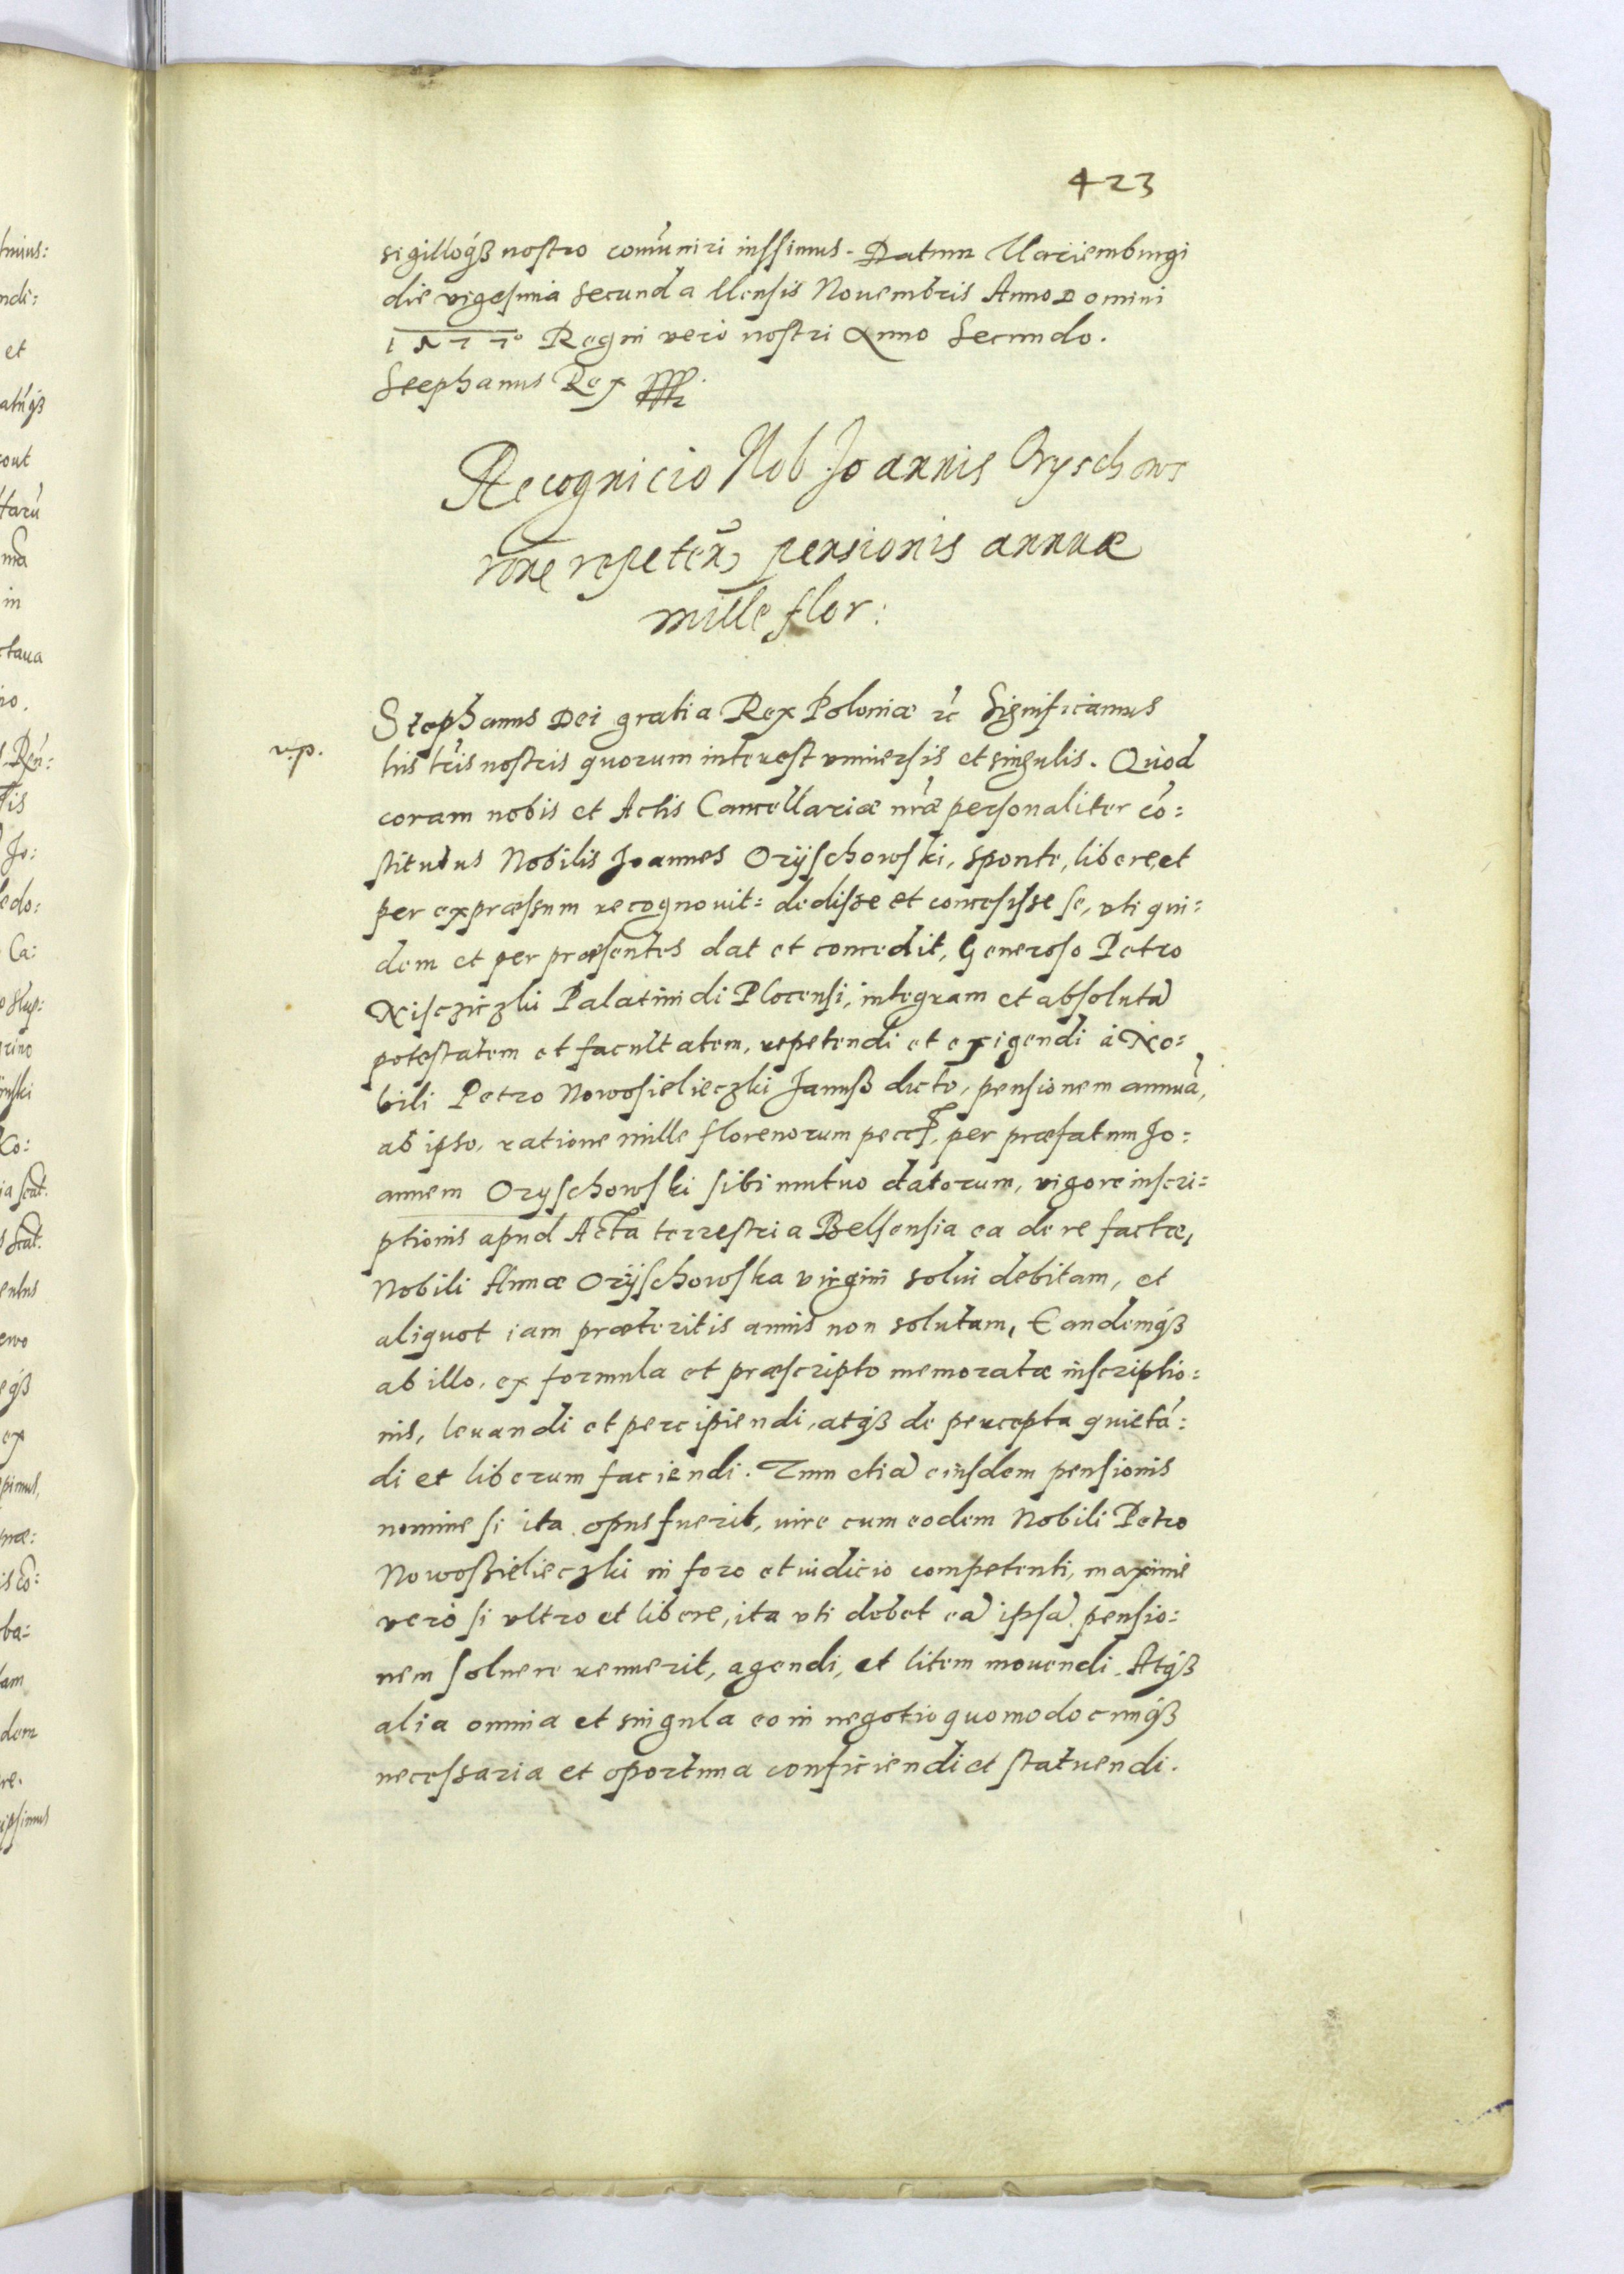 423
sigilloq́ꝫ nostro com̃uniri iussimus. Datum Mariemburgi
die vigesima secunda Mensis Nouembris Anno Domini
1577º Regni vero nostri Anno Secundo.
Stephanus Rex
Recognicio Nob Joannis Oryschows
rõne repeteñ pensionis annuæ
mille flor:
Stephanus Dei gratia Rex Poloniæ ꝛc̃ Significamus
v.p.
his l̃ris nostris quorum interest vniuersis et singulis. Quod
coram nobis et Actis Cancellariæ nr̃æ personaliter cõ:
stitutus Nobilis Joannes Orÿschowski, sponte, libere, et
per expræssum recognouit: dedisse et concessisse se, vti qui:
dem et per præsentes dat et concedit, Generoso Petro
Nisczіczki Palatinidi Plocensi, integram et absolutã
potestatem et facultatem, repetendi et exigendi à No:
bili Petro Nowosielieczki Janusß dicto, pensionem annuã,
ab ipso, ratione mille florenorum pecc̃, per præfatum Jo:
annem Oryschowski sibi mutuo datorum, vigore inscri:
ptionis apud Acta terrestria Belsensia ea de re factæ,
Nobili Annæ Orÿschowska virgini solui debitam, et
aliquot iam præteritis annis non solutam, Eandemq́ꝫ
ab illo, ex formula et præscripto memoratæ inscriptio:
nis, leuandi et percipiendi, atq́ꝫ de percepta quietã:
di et liberum faciendi. Tum etiã eiusdem pensionis
nomine si ita opus fuerit, iure cum eodem Nobili Petro
Nowosßielieczki in foro et iudicio competenti, maxime
vero si vltro et libere, ita vti debet eã ipsã pensio:
nem soluere renuerit, agendi, et litem mouendi. Atq́ꝫ
alia omnia et singula eo in negotio quomodocunq́ꝫ
necessaria et oportuna conficiendi et statuendi.